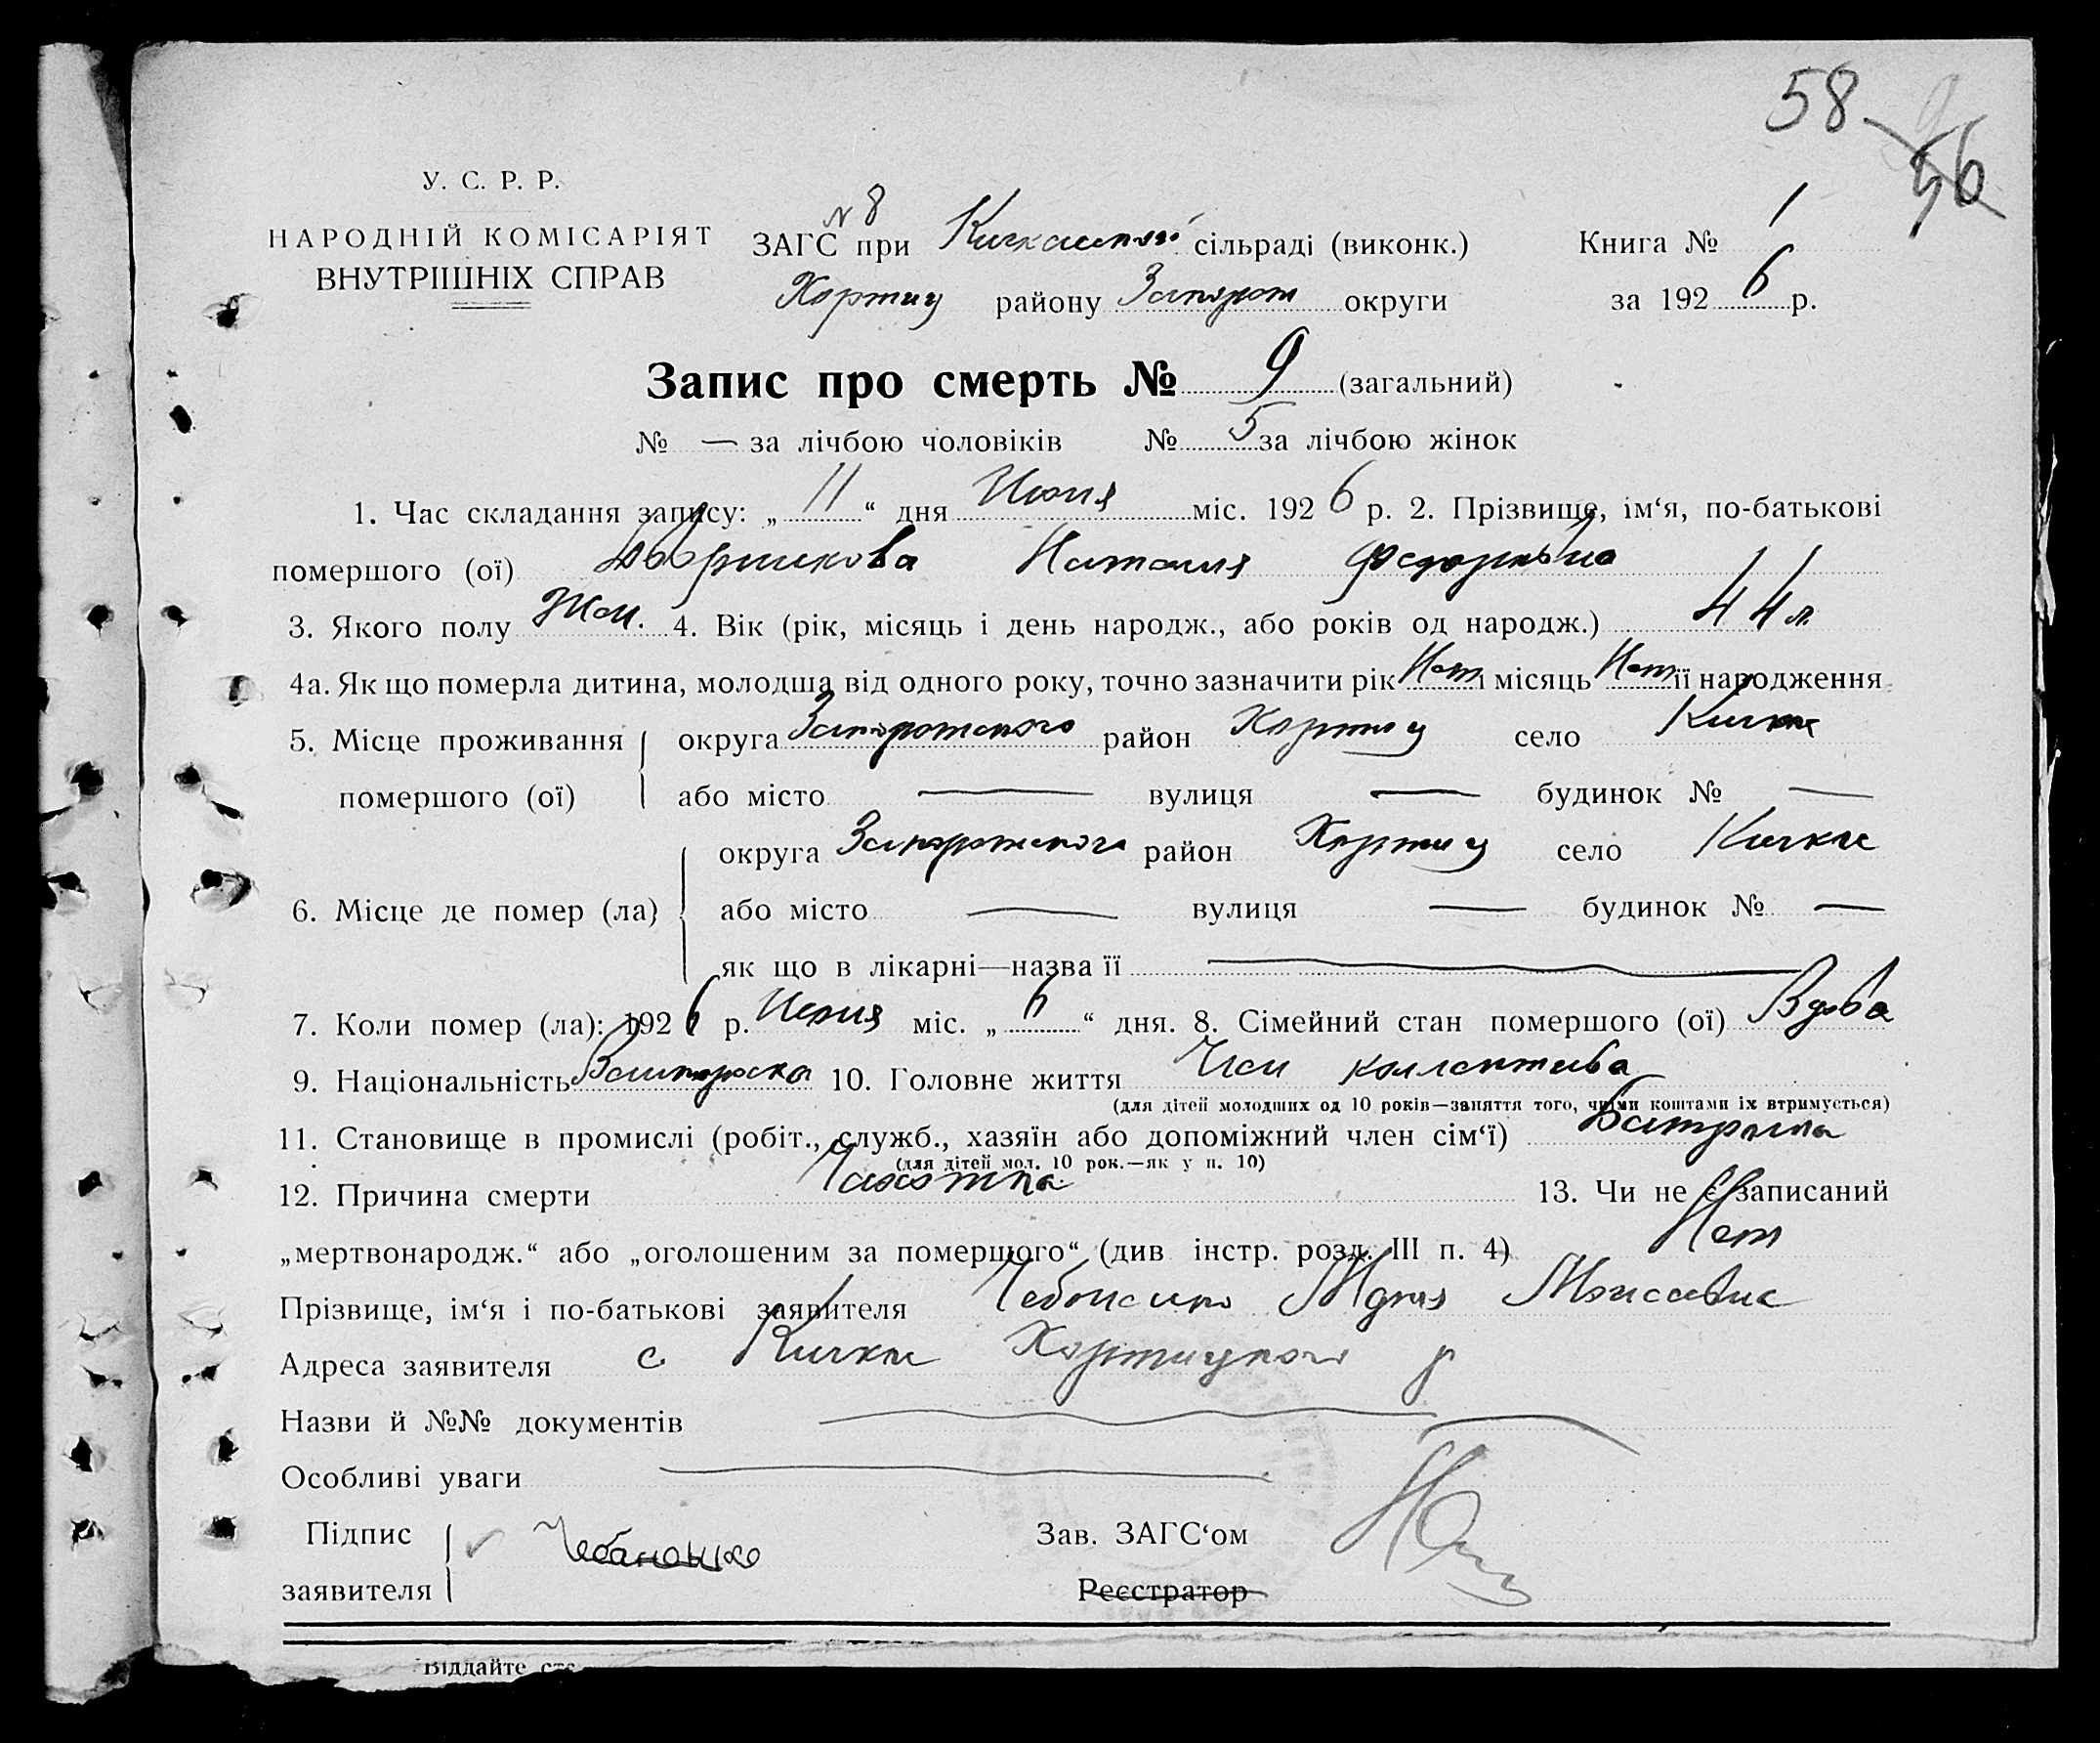 58 56
У. С. Р. Р.
НАРОДНІЙ КОМІСАРІЯТ
ВНУТРІШНІХ СПРАВ
N 8
ЗАГС при Кичкасской сільраді (виконк.) Книга № 1
Хортиц району Запорож округи за 1926 р.
Запис про смерть № 9 (загальний)
№ — за лічбою чоловіків № 5 за лічбою жінок
1. Час складання запису: „11“ дня Июня міс. 1926 р. 2. Прізвище, ім‘я, по-батькові
помершого (ої) Наталия Федоровна
3. Якого полу Жен. 4. Вік (рік, місяць і день народж., або років од народж.) 44 л.
4а. Як що померла дитина, молодша від одного року, точно зазначити рік Нет і місяць Нет її народження
5. Місце проживання округа Запорожского район Хортиц село Кичкас
помершого (ої) або місто — вулиця — будинок № —
округа Запорожского район Хортиц село Кичкас
6. Місце де помер (ла) або місто — вулиця — будинок № —
як що в лікарні—назва її —
7. Коли помер (ла): 1926 р. Июня міс. „6“ дня. 8. Сімейний стан помершого (ої) Вдова
9. Національність 10. Головне життя Член коллектива
(для дітей молодших од 10 років—заняття того, чиїми коштами їх втримується)
11. Становище в промислі (робіт., служб., хазяїн або допоміжний член сім‘ї)
(для дітей мол. 10 рок.—як у п. 10)
12. Причина смерти Чахотка 13. Чи не є записаний
„мертвонародж.“ або „оголошеним за помершого“ (див інстр. розд. III п. 4) Нет
Прізвище, ім‘я і по-батькові заявителя Чебаненко
Адреса заявителя с. Кичкас Хортицкого р
Назви й №№ документів —
Особливі уваги —
Підпис Чебаненко Зав. ЗАГС‘ом
заявителя Реєстратор
Віддайте